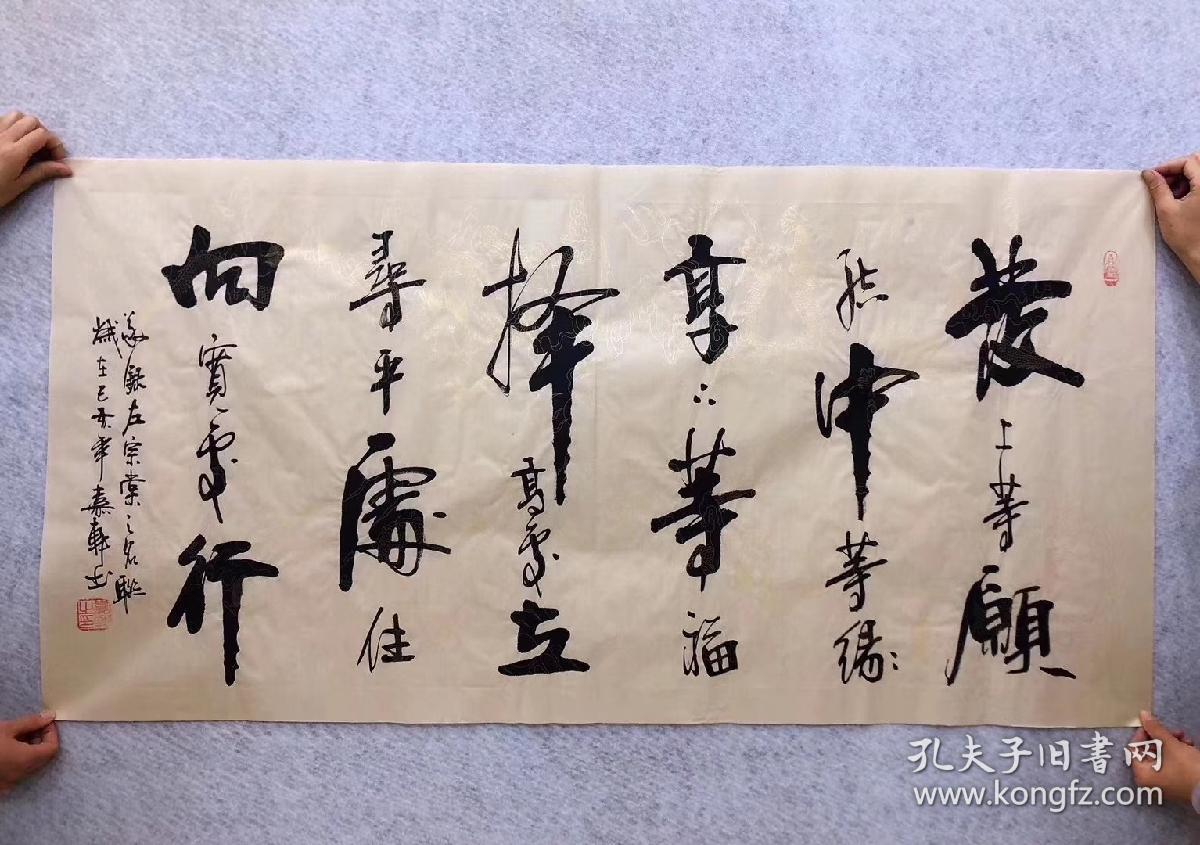 發上等願
結中等緣
享下等福
择高處立
尋平處住
向寬處行
錄左宗棠之名聯
歲在己亥年嘉軒书
孔夫子旧书网
www.kongfz.com